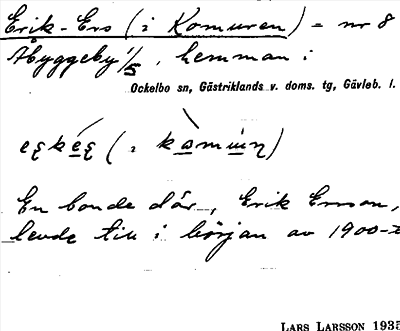 Erik-Ers (i Komuren) = nr 8
Åbyggeby 1/5, hemman i
Ockelbo sn, Gästriklands v. doms. tg, Gävleb. l.
En bonde där, Erik Ersson,
levde till i början av 1900-t
LARS LARSSON 1935